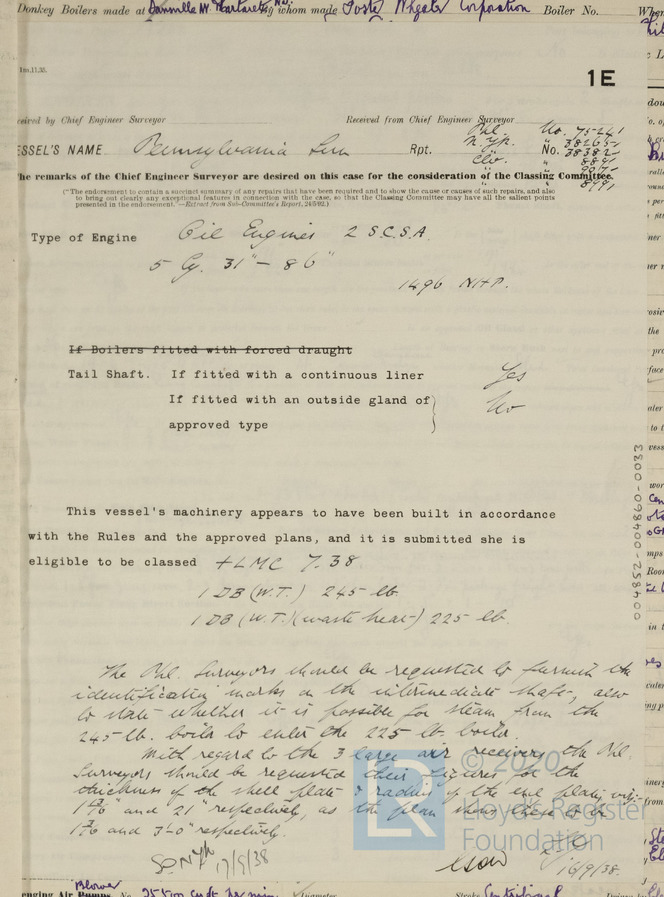 Donkey Boilers made at Dansville N. by whom made Foster Wheeler Corporation Boiler No. Whe
1m,11,35.
1E
ceived by Chief Engineer Surveyor Received from Chief Engineer Surveyor
Phl. No. 75241
ESSEL'S NAME Pennsylvania Sun Rpt. N.Yk. No. 38265
Clv. " 8891
" 8991
he remarks of the Chief Engineer Surveyor are desired on this case for the consideration of the Classing Committee.
("The endorsement to contain a succinct summary of any repairs that have been required and to show the cause or causes of such repairs, and also
to bring out clearly any exceptional features in connection with the case, so that the Classing Committee may have all the salient points
presented in the endorsement."—Extract from Sub-Committee's Report, 24/5/92.)
Type of Engine Oil Engines 2 S.C.S.A.
5 Cy. 31" - 86"
1496 NHP.
If Boilers fitted with forced draught
Tail Shaft. If fitted with a continuous liner Yes
If fitted with an outside gland of No
approved type
This vessel's machinery appears to have been built in accordance
with the Rules and the approved plans, and it is submitted she is
eligible to be classed +LMC 7.38
1 DB (W.T.) 245 lb.
1 DB (W.T.) (waste heat) 225 lb.
The Phl. Surveyors should be requested to furnish the
identification marks on the intermediate shafts, also
to state whether it is possible for steam from the
245 lb. boiler to enter the 225 lb. boiler.
With regard to the 3 large air receivers the Phl.
Surveyors should be requested their figures for the
thickness of the shell plate & radius of the end plate, viz:-
and 21" respectively, as the plan shows these to be
and 3'-0" respectively.
17/9/38
16/9/38.
004852-004860-0083
© 2020
Lloyd's Register
Foundation
enging Air Pumps No. Blower 25500 cu ft per min Diameter Stroke Centrifugal